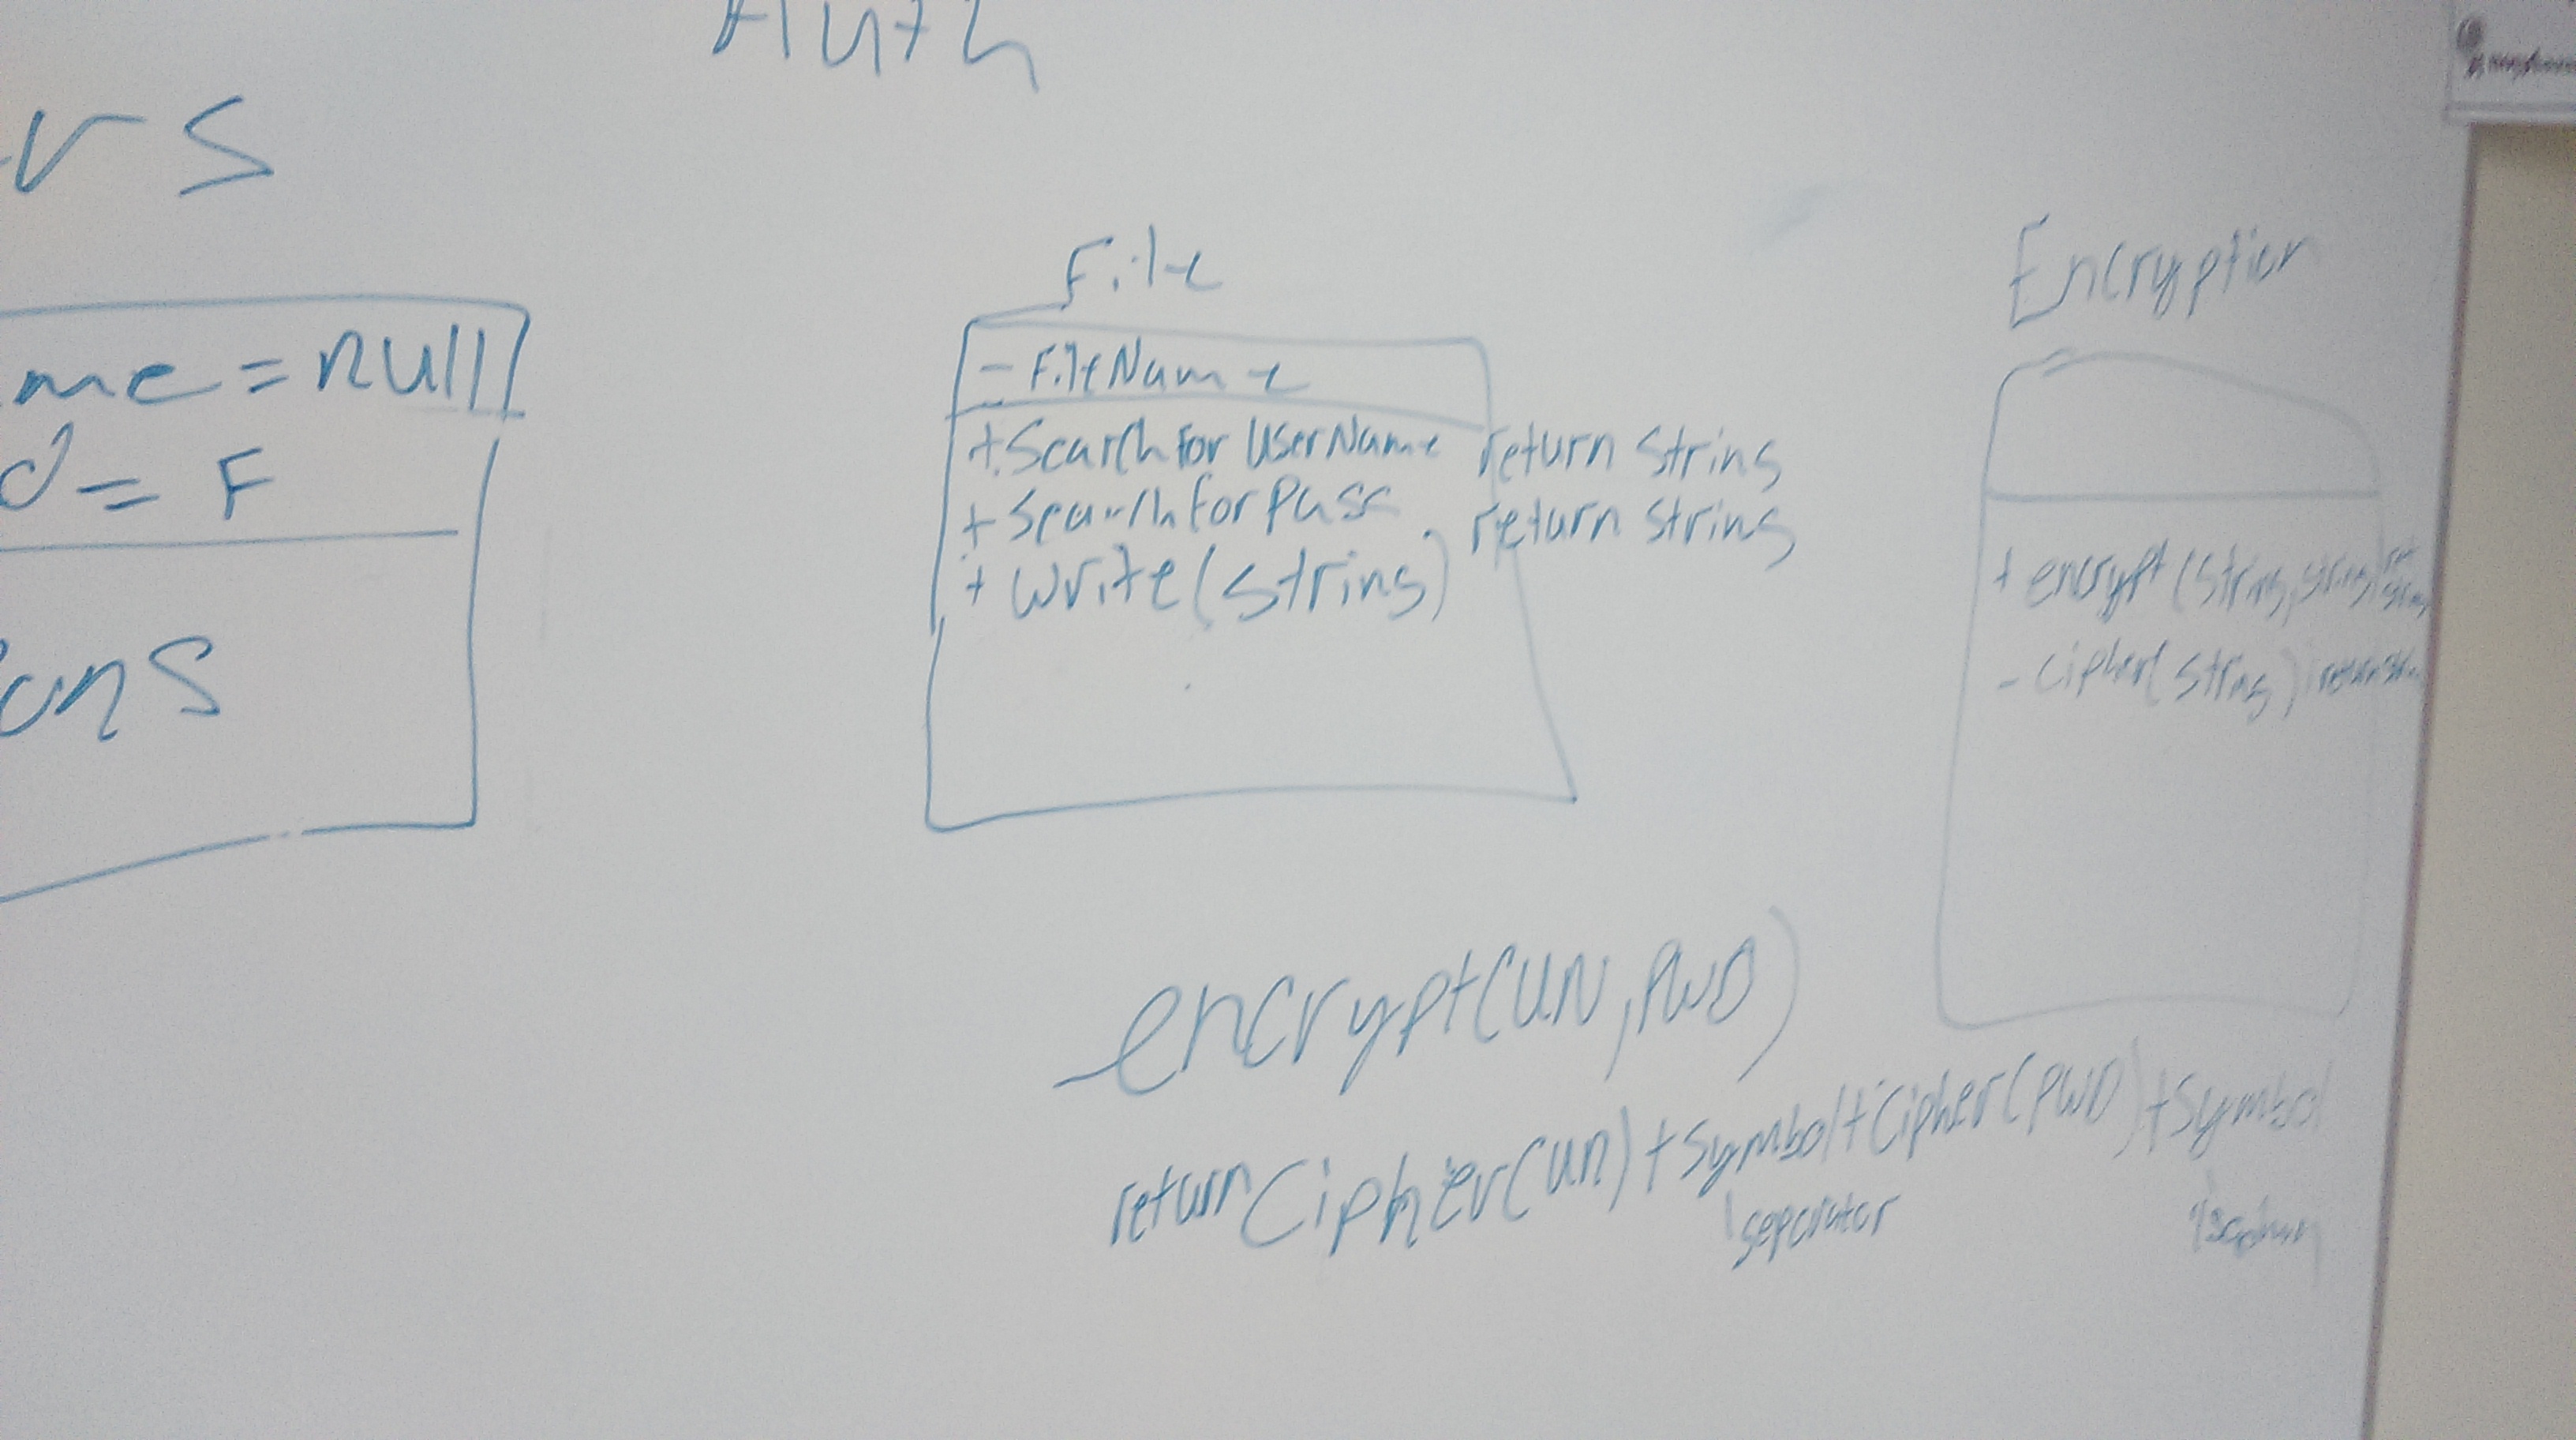 Auth
rs
me = null
d = F
ons
File
- FileName
+ Search For UserName return string
+ Search For Pass return string
+ write(string)
Encryption
+ encrypt(string, string) ret string
- cipher(string) return
encrypt(UN, PWD)
return Cipher(UN) + Symbol + Cipher(PWD) + Symbol
seperator